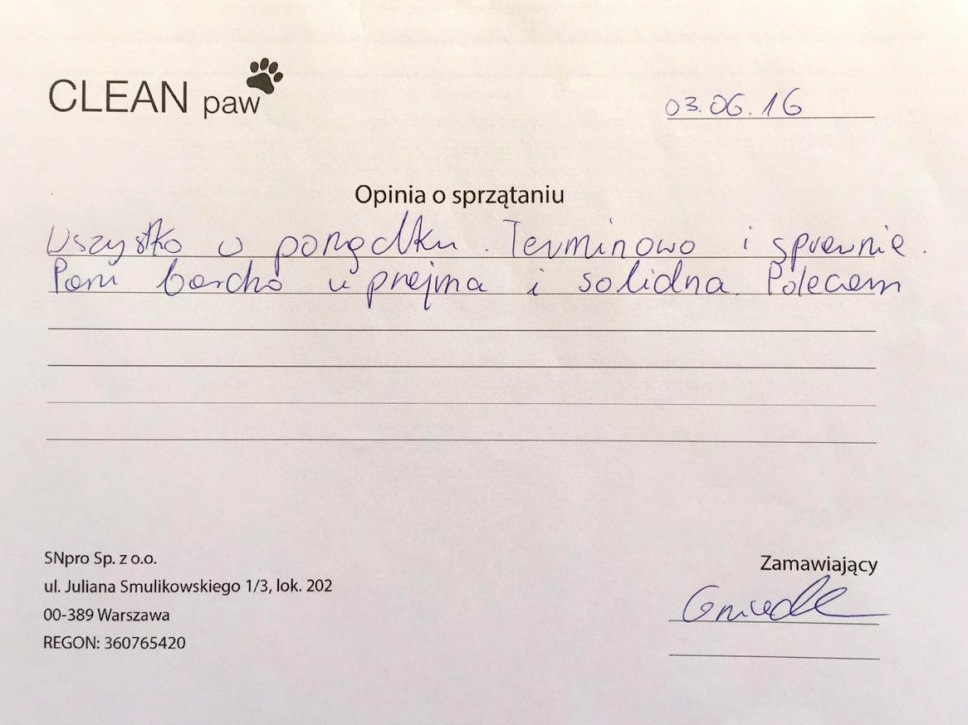 CLEAN paw
03.06.16
Opinia o sprzątaniu
Wszystko w porządku. Terminowo i sprawnie.
Pani bardzo uprzejma i solidna. Polecam
SNpro Sp. z o.o.
ul. Juliana Smulikowskiego 1/3, lok. 202
00-389 Warszawa
REGON: 360765420
Zamawiający